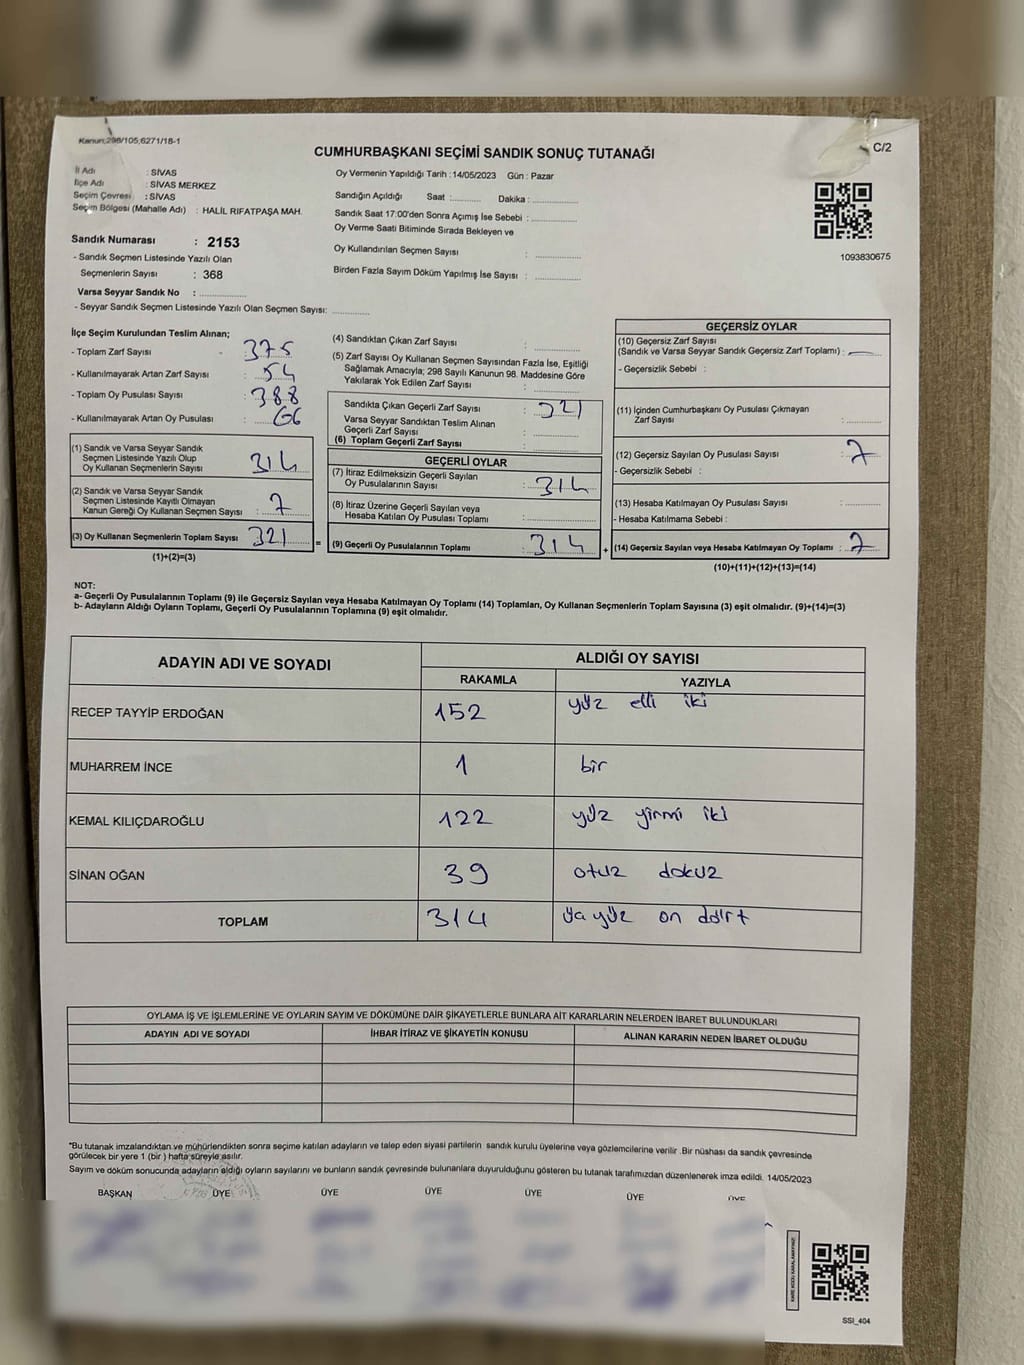 Kanun;298/105,6271/18-1
CUMHURBAŞKANI SEÇİMİ SANDIK SONUÇ TUTANAĞI
C/2
İl Adı : SİVAS
İlçe Adı : SİVAS MERKEZ
Seçim Çevresi : SİVAS
Seçim Bölgesi (Mahalle Adı) : HALİL RIFATPAŞA MAH.
Sandık Numarası : 2153
- Sandık Seçmen Listesinde Yazılı Olan
Seçmenlerin Sayısı : 368
Varsa Seyyar Sandık No : ..............
- Seyyar Sandık Seçmen Listesinde Yazılı Olan Seçmen Sayısı: ..............
Oy Vermenin Yapıldığı Tarih : 14/05/2023 Gün : Pazar
Sandığın Açıldığı Saat :.......... Dakika :..............
Sandık Saat 17:00'den Sonra Açımış İse Sebebi : ..............
Oy Verme Saati Bitiminde Sırada Bekleyen ve
Oy Kullandırılan Seçmen Sayısı : ..............
Birden Fazla Sayım Döküm Yapılmış İse Sayısı : ..............
1093830675
İlçe Seçim Kurulundan Teslim Alınan;
- Toplam Zarf Sayısı - 375
- Kullanılmayarak Artan Zarf Sayısı : 54
- Toplam Oy Pusulası Sayısı : 388
- Kullanılmayarak Artan Oy Pusulası : 66
(1) Sandık ve Varsa Seyyar Sandık
Seçmen Listesinde Yazılı Olup
Oy Kullanan Seçmenlerin Sayısı : 314
(2) Sandık ve Varsa Seyyar Sandık
Seçmen Listesinde Kayıtlı Olmayan
Kanun Gereği Oy Kullanan Seçmen Sayısı : 7
(3) Oy Kullanan Seçmenlerin Toplam Sayısı : 321
(1)+(2)=(3)
(4) Sandıktan Çıkan Zarf Sayısı : ..............
(5) Zarf Sayısı Oy Kullanan Seçmen Sayısından Fazla İse, Eşitliği
Sağlamak Amacıyla; 298 Sayılı Kanunun 98. Maddesine Göre
Yakılarak Yok Edilen Zarf Sayısı : ..............
Sandıkta Çıkan Geçerli Zarf Sayısı : 321
Varsa Seyyar Sandıktan Teslim Alınan
Geçerli Zarf Sayısı : ..............
(6) Toplam Geçerli Zarf Sayısı : ..............
GEÇERLİ OYLAR
(7) İtiraz Edilmeksizin Geçerli Sayılan
Oy Pusulalarının Sayısı : 314
(8) İtiraz Üzerine Geçerli Sayılan veya
Hesaba Katılan Oy Pusulası Toplamı : ..............
= (9) Geçerli Oy Pusulalarının Toplamı : 314
GEÇERSİZ OYLAR
(10) Geçersiz Zarf Sayısı
(Sandık ve Varsa Seyyar Sandık Geçersiz Zarf Toplamı) : —
- Geçersizlik Sebebi :
(11) İçinden Cumhurbaşkanı Oy Pusulası Çıkmayan
Zarf Sayısı : ..............
(12) Geçersiz Sayılan Oy Pusulası Sayısı : 7
- Geçersizlik Sebebi :
(13) Hesaba Katılmayan Oy Pusulası Sayısı : ..............
- Hesaba Katılmama Sebebi :
+ (14) Geçersiz Sayılan veya Hesaba Katılmayan Oy Toplamı : 7
(10)+(11)+(12)+(13)=(14)
NOT:
a- Geçerli Oy Pusulalarının Toplamı (9) ile Geçersiz Sayılan veya Hesaba Katılmayan Oy Toplamı (14) Toplamları, Oy Kullanan Seçmenlerin Toplam Sayısına (3) eşit olmalıdır. (9)+(14)=(3)
b- Adayların Aldığı Oyların Toplamı, Geçerli Oy Pusulalarının Toplamına (9) eşit olmalıdır.
ADAYIN ADI VE SOYADI ALDIĞI OY SAYISI
RAKAMLA YAZIYLA
RECEP TAYYİP ERDOĞAN 152 yüz elli iki
MUHARREM İNCE 1 bir
KEMAL KILIÇDAROĞLU 122 yüz yirmi iki
SİNAN OĞAN 39 otuz dokuz
TOPLAM 314 üç yüz on dört
OYLAMA İŞ VE İŞLEMLERİNE VE OYLARIN SAYIM VE DÖKÜMÜNE DAİR ŞİKAYETLERLE BUNLARA AİT KARARLARIN NELERDEN İBARET BULUNDUKLARI
ADAYIN ADI VE SOYADI İHBAR İTİRAZ VE ŞİKAYETİN KONUSU ALINAN KARARIN NEDEN İBARET OLDUĞU
*Bu tutanak imzalandıktan ve mühürlendikten sonra seçime katılan adayların ve talep eden siyasi partilerin sandık kurulu üyelerine veya gözlemcilerine verilir .Bir nüshası da sandık çevresinde
görülecek bir yere 1 (bir ) hafta süreyle asılır.
Sayım ve döküm sonucunda adayların aldığı oyların sayılarını ve bunların sandık çevresinde bulunanlara duyurulduğunu gösteren bu tutanak tarafımızdan düzenlenerek imza edildi. 14/05/2023
BAŞKAN ÜYE ÜYE ÜYE ÜYE ÜYE ÜYE
KARE KODU KARALAMAYINIZ!
SSI_404